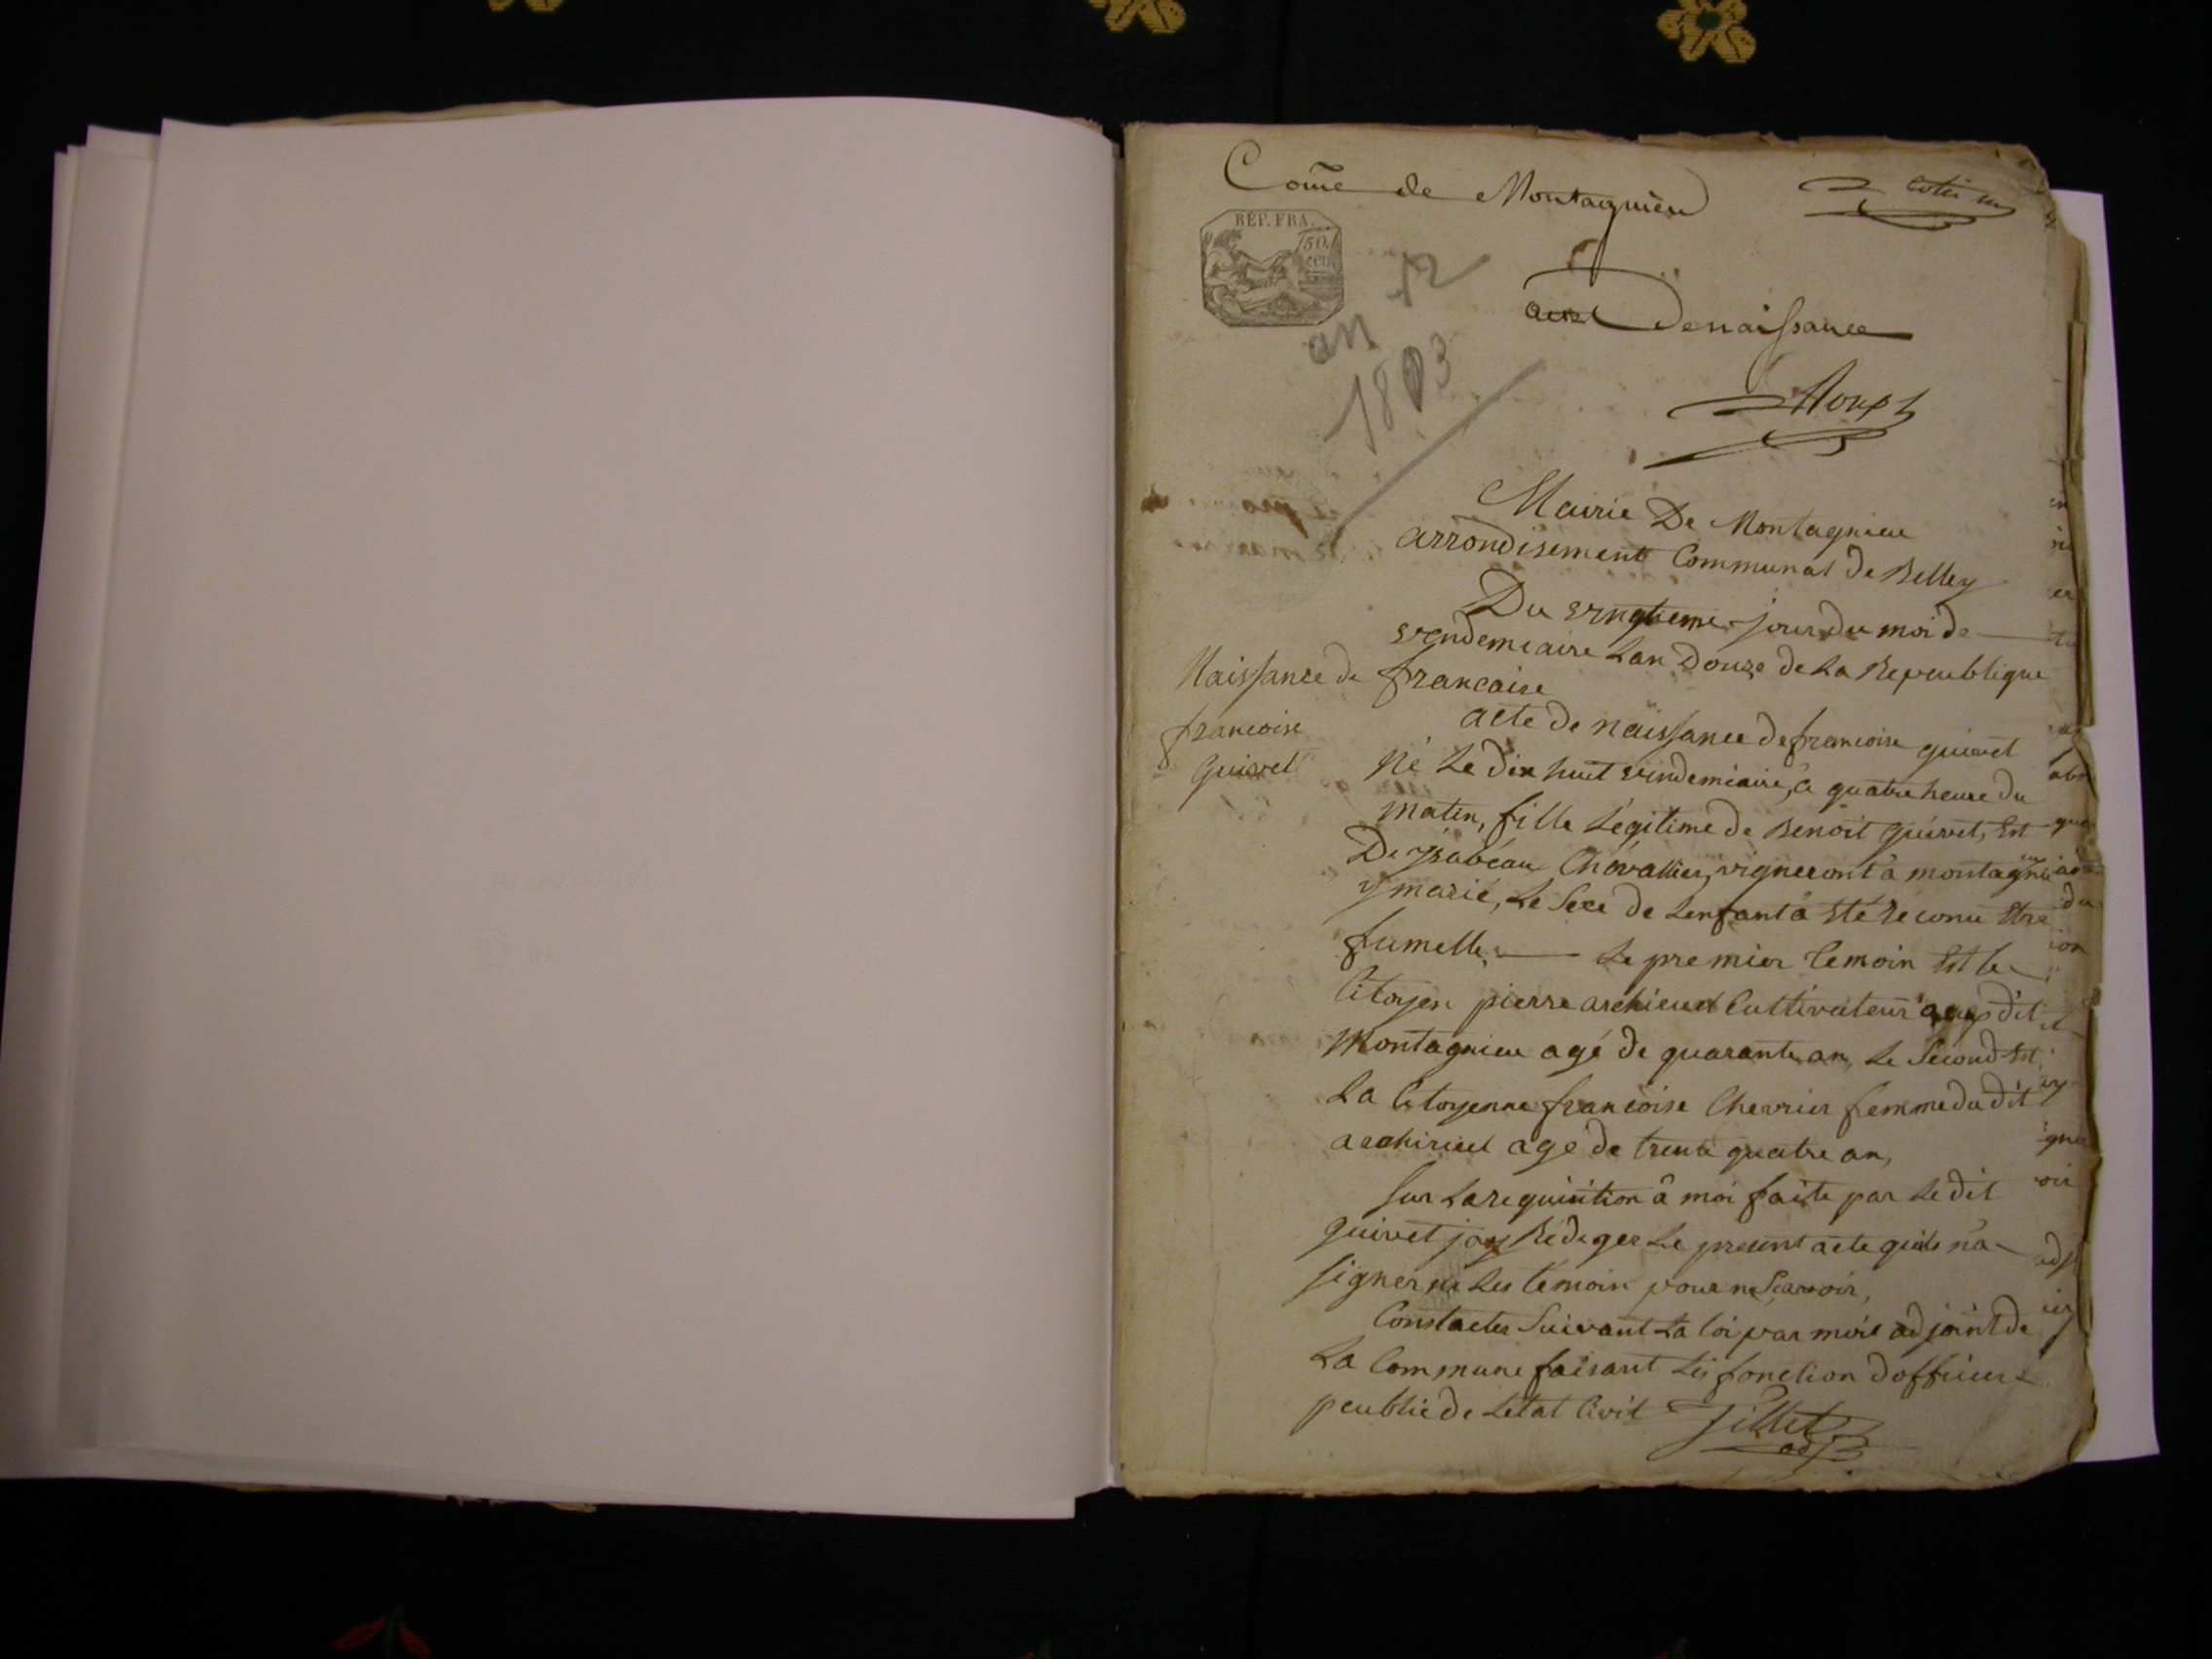 Com̃e de Montagnieu
cotté
RÉP. FRA.
50.
cen
an 12
1803
acte De naissance
Mairie De Montagnieu
arrondisement Communal de Belley
Du vingtieme jour du moi de
vendemiaire Lan Douze de La Repeublique
francaise
Naissance de
francoise
Guivet
acte de naissance de francoise guivet
Né Le dix huit vindemiaire, a quatre heure du
matin, fille Légitime de Benoit guivet, Est
De ysabeau Chévallier, vigneront á montagnieu
y marié, Le Sexe de Lenfant á Eté réconu Etre
fumelle, Le premier temoin Est le
Citoyen pierre archieud Cultivateur dit
Montagnieu agé de quarante an, Le Second Est
La Citoyenne francoise Chevrier femme du dit
archiried agé de trente quatre an,
Sur La requisition á moi faite par Le dit
guivet jay Rédiger Le present acte quils na
signer ni Les témoin pour ne Scavoir,
Constacter Suivant La loi par mois adjoint de
La Commune faisant Les fonction dofficier
peublic de Letat Civil Fillet
adj